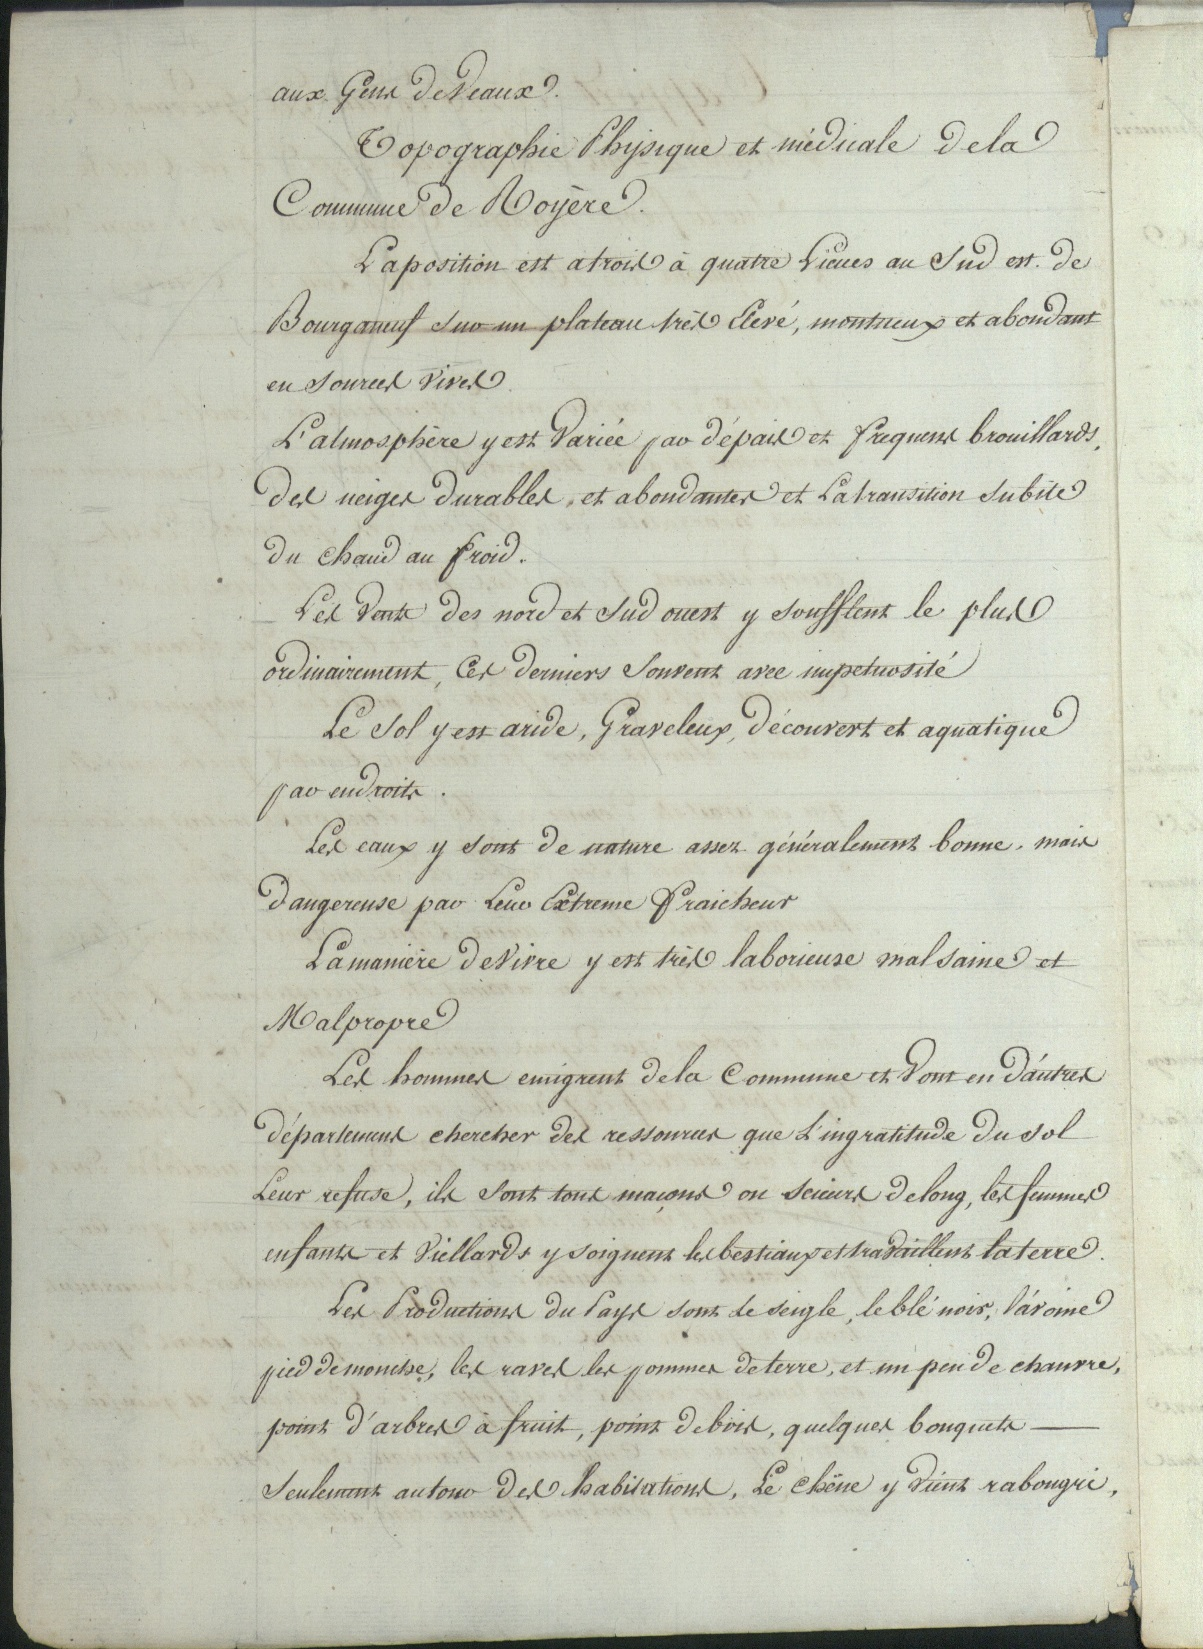 aux Gens de Veaux.
Topographie Physique et médicale de la
Commune de Royère.
La position est a trois à quatre Lieues au Sud est de
Bourganeuf sur un plateau très Elevé, montueux et abondant
en sources vives
L'atmosphère y est Variée par d'épais et frequens brouillards,
des neiges durables, et abondantes et La transition subite
du chaud au froid.
Les Vents des nord et Sud ouest y soufflent le plus
ordinairement, Ces derniers Souvent avec impetuosité
Le Sol y est aride, Graveleux, découvert et aquatique
par endroits.
Les eaux y sont de nature assez généralement bonne, mais
dangereuse par Leur Extreme fraicheur
La manière de Vivre y est très laborieuse mal saine et
Malpropre
Les hommes emigrent de la Commune et Vont en d'autres
départemens chercher des ressources que L'ingratitude du sol
Leur refuse, ils sont tous maçons ou Scieurs de long, les femmes
enfants et Viellards y soignent les bestiaux et travaillent la terre.
Les Productions du Pays sont le seigle, le blé noir, l'avoine
pied de mouche, les raves les pommes de terre, et un peu de chanvre,
point d'arbres à fruit, point de bois, quelques bouquets
Seulement autour des habitations, Le chêne y Vient rabougri,